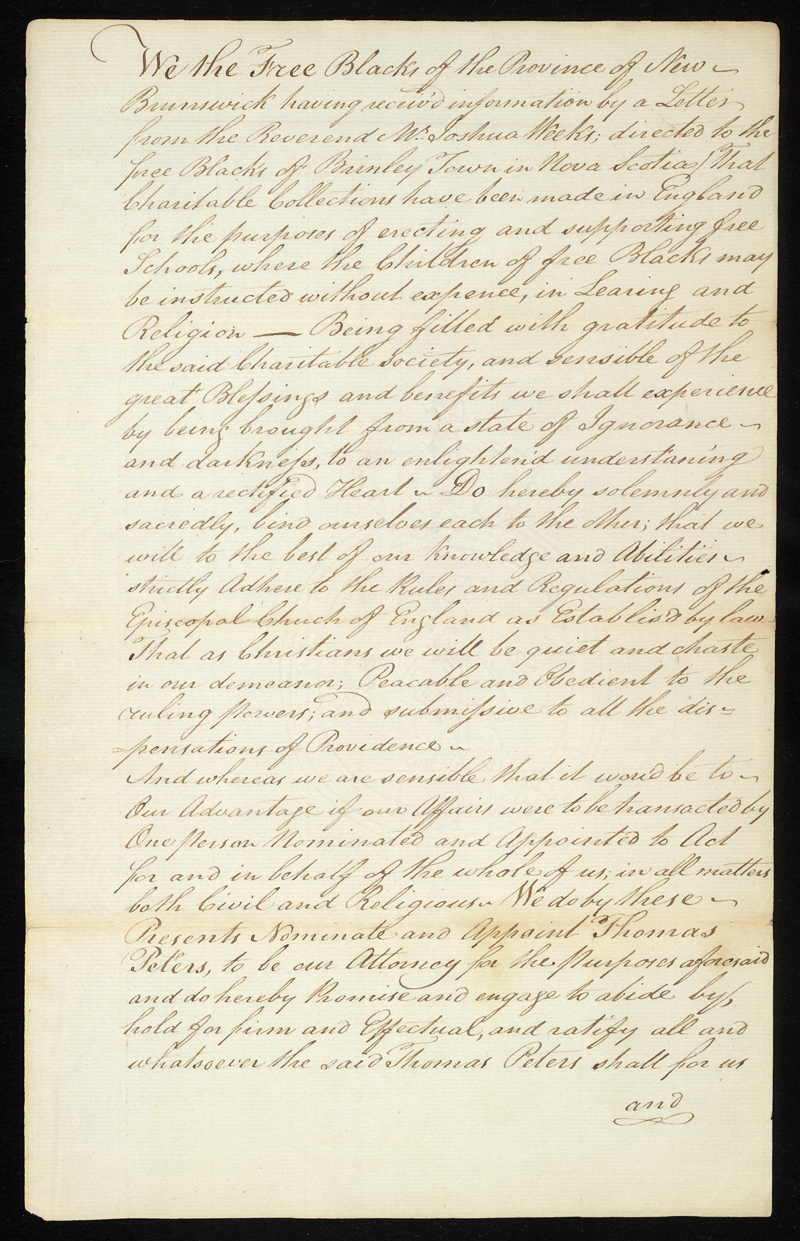 We the Free Blacks of the Province of New
Brunswick having receiv'd information by a Letter
from the Reverend Mr. Joshua Weeks; directed to the
free Blacks of Brinley Town in Nova Scotia / That
Charitable Collections have been made in England
for the purposes of erecting and supporting free
Schools, where the Children of free Blacks may
be instructed without expence, in Learing and
Religion — Being filled with gratitude to
the said Charitable Society, and sensible of the
great Blessings and benefits we shall experience
by being brought from a state of Ignorance
and darkness, to an enlighten'd understaning
and a rectified Heart ~ Do hereby solemnly and
sacredly, bind ourselves each to the other; that we
will to the best of our knowledge and Abilities
strictly Adhere to the Rules and Regulations of the
Episcopal Chuch of England as Establis'd by law.
That as Christians we will be quiet and chaste
in our demeanor; Peacable and Obedient to the
ruling Powers; and submissive to all the dis=
=pensations of Providence ~
And whereas we are sensible that it would be to
Our Advantage if our Affairs were to be transacted by
One person Nominated and Appointed to Act
for and in behalf of the whole of us; in all matters
both Civil and Religious ~ We do by these
Presents Nominate and Appoint Thomas
Peters, to be our Attorney for the Purposes aforesaid
and do hereby Promise and engage to abide by,
hold for firm and Effectual, and ratify all and
whatsoever the said Thomas Peters shall for us
and